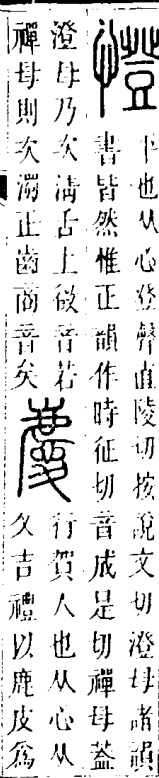 憕
平也从心登聲直陵切按說文切澄母諸韻
書皆然惟正韻作時征切音成是切禪母蓋
澄母乃次清舌上徵音若
禪母則次濁正齒商音矣
慶
行賀人也从心从
夂吉禮以鹿皮爲